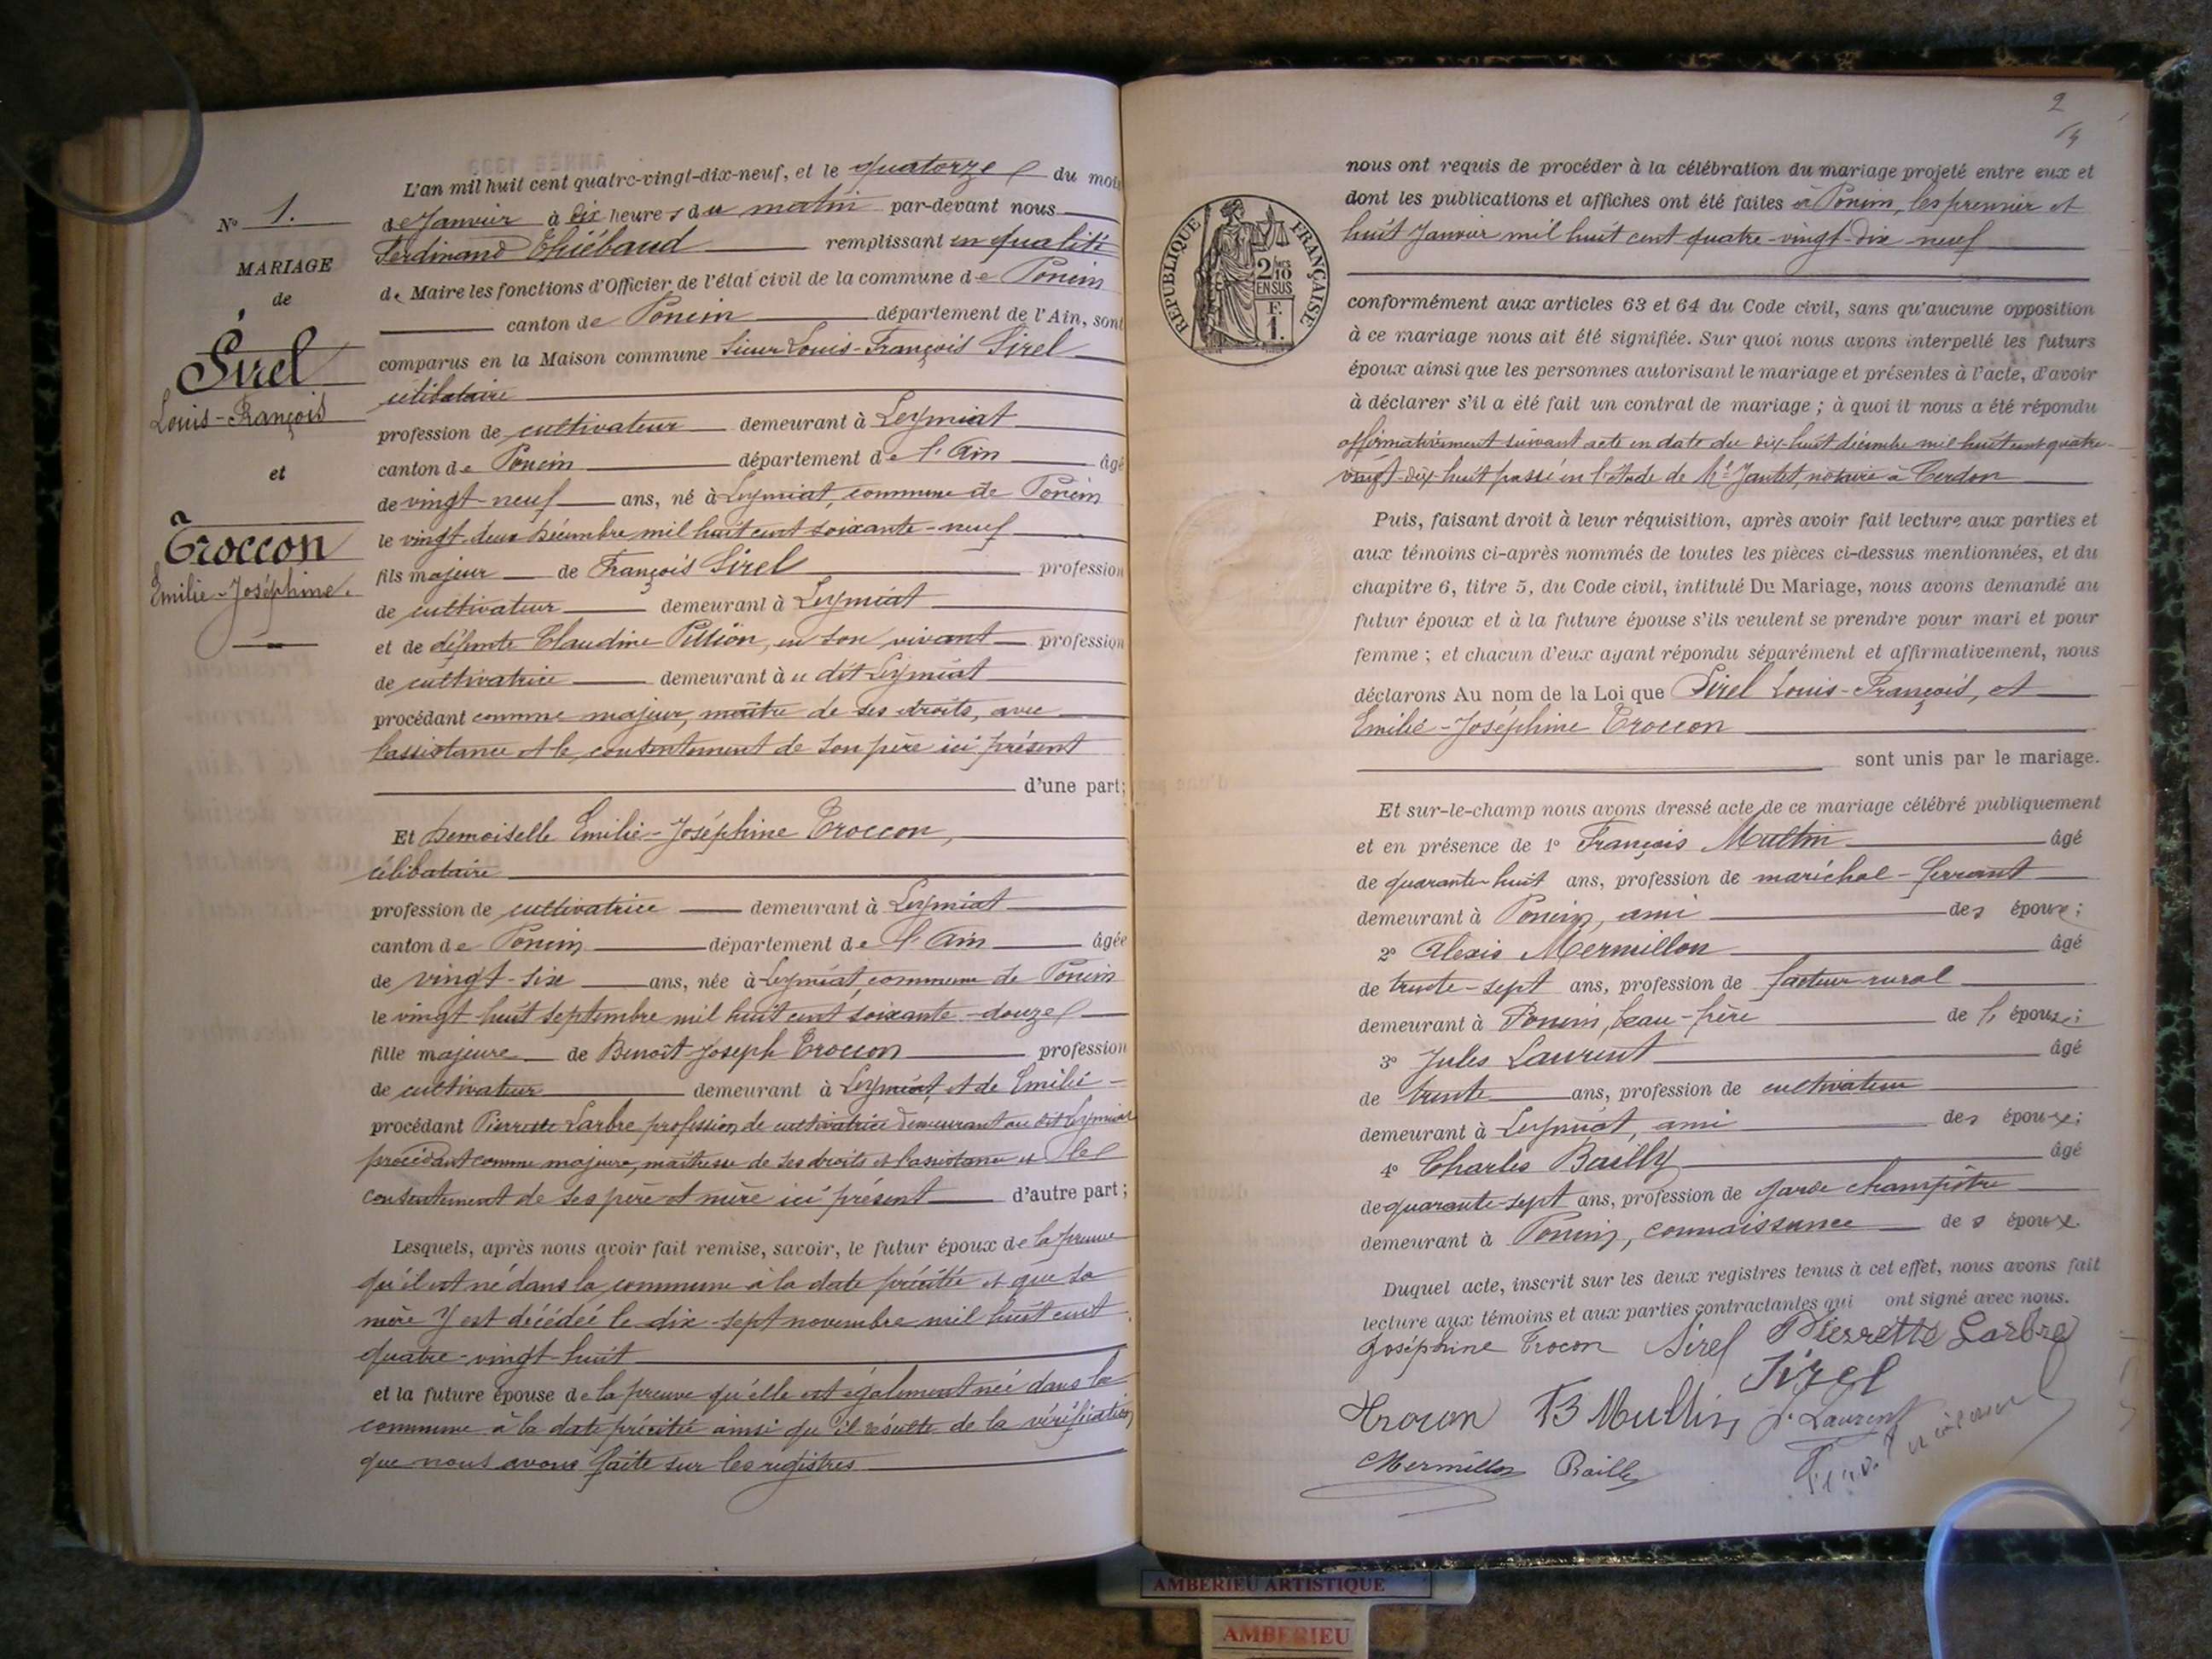 N° 1.
MARIAGE
de
Sirel
Louis-François
et
Troccon
Emilie-Joséphine.
L'an mil huit cent quatre-vingt-dix-neuf, et le quatorze du mois
de Janvier à dix heures du matin par-devant nous
Ferdinand Thiébaud remplissant en qualité
de Maire les fonctions d'Officier de l'état civil de la commune de Poncin
canton de Poncin département de l'Ain, sont
comparus en la Maison commune Sieur Louis-François Sirel
célibataire
profession de cultivateur demeurant à Leymiat
canton de Poncin département de l'Ain âgé
de vingt-neuf ans, né à Leymiat, commune de Poncin
le vingt-deux Décembre mil huit cent soixante-neuf
fils majeur de François Sirel profession
de cultivateur demeurant à Leymiat
et de défunte Claudine Pillion, en son vivant profession
de cultivatrice demeurant à u dit Leymiat
procédant comme majeur, maître de ses droits, avec
l'assistance et le consentement de son père ici présent
d'une part;
Et Demoiselle Emilie-Joséphine Troccon,
célibataire
profession de cultivatrice demeurant à Leymiat
canton de Poncin département de l'Ain âgée
de vingt-six ans, née à Leymiat, commune de Poncin
le vingt huit septembre mil huit cent soixante-douze
fille majeure de Benoît Joseph Troccon profession
de cultivateur demeurant à Leymiat et de Emilie-
procédant Pierrette Larbre profession de cultivatrice demeurant au dit Leymiat
procédant comme majeure, maîtresse de ses droits et l'assistance et le
consentement de ses père et mère ici présent d'autre part;
Lesquels, après nous avoir fait remise, savoir, le futur époux de la preuve
qu'il est né dans la commune à la date précitée et que sa
mère y est décédée le dix-sept novembre mil huit cent
quatre-vingt-huit
et la future épouse de la preuve qu'elle est également née dans la
commune à la date précitée ainsi qu'il résulte de la vérification
que nous avons faite sur les registres
2
RÉPUBLIQUE FRANÇAISE
2/10
EN SUS
F.
1.
nous ont requis de procéder à la célébration du mariage projeté entre eux et
dont les publications et affiches ont été faites à Poncin, les premier et
huit Janvier mil huit cent quatre-vingt-dix neuf
conformément aux articles 63 et 64 du Code civil, sans qu'aucune opposition
à ce mariage nous ait été signifiée. Sur quoi nous avons interpellé les futurs
époux ainsi que les personnes autorisant le mariage et présentes à l'acte, d'avoir
à déclarer s'il a été fait un contrat de mariage; à quoi il nous a été répondu
affirmativement suivant acte en date du dix-huit décembre mil huit cent quatre-
vingt-dix-huit passé en l'étude de Me Jantet notaire à Cerdon
Puis, faisant droit à leur réquisition, après avoir fait lecture aux parties et
aux témoins ci-après nommés de toutes les pièces ci-dessus mentionnées, et du
chapitre 6, titre 5, du Code civil, intitulé Du Mariage, nous avons demandé au
futur époux et à la future épouse s'ils veulent se prendre pour mari et pour
femme; et chacun d'eux ayant répondu séparément et affirmativement, nous
déclarons Au nom de la Loi que Sirel Louis-François, et
Emilie-Joséphine Troccon
sont unis par le mariage.
Et sur-le-champ nous avons dressé acte de ce mariage célébré publiquement
et en présence de 1° François Multin âgé
de quarante-huit ans, profession de maréchal-ferrant
demeurant à Poncin, ami des époux;
2° Alexis Mermillon âgé
de trente-sept ans, profession de facteur rural
demeurant à Poncin, beau-frère de l'épouse;
3° Jules Laurent âgé
de trente ans, profession de cultivateur
demeurant à Leymiat, ami des époux;
4° Charles Bailly âgé
de quarante-sept ans, profession de garde champêtre
demeurant à Poncin, connaissance des époux.
Duquel acte, inscrit sur les deux registres tenus à cet effet, nous avons fait
lecture aux témoins et aux parties contractantes qui ont signé avec nous.
Joséphine Trocon Sirel Pierrette Larbre
Sirel
Trocon F3 Multin J. Laurent
Mermillon Bailly
AMBERIEU ARTISTIQUE
AMBERIEU